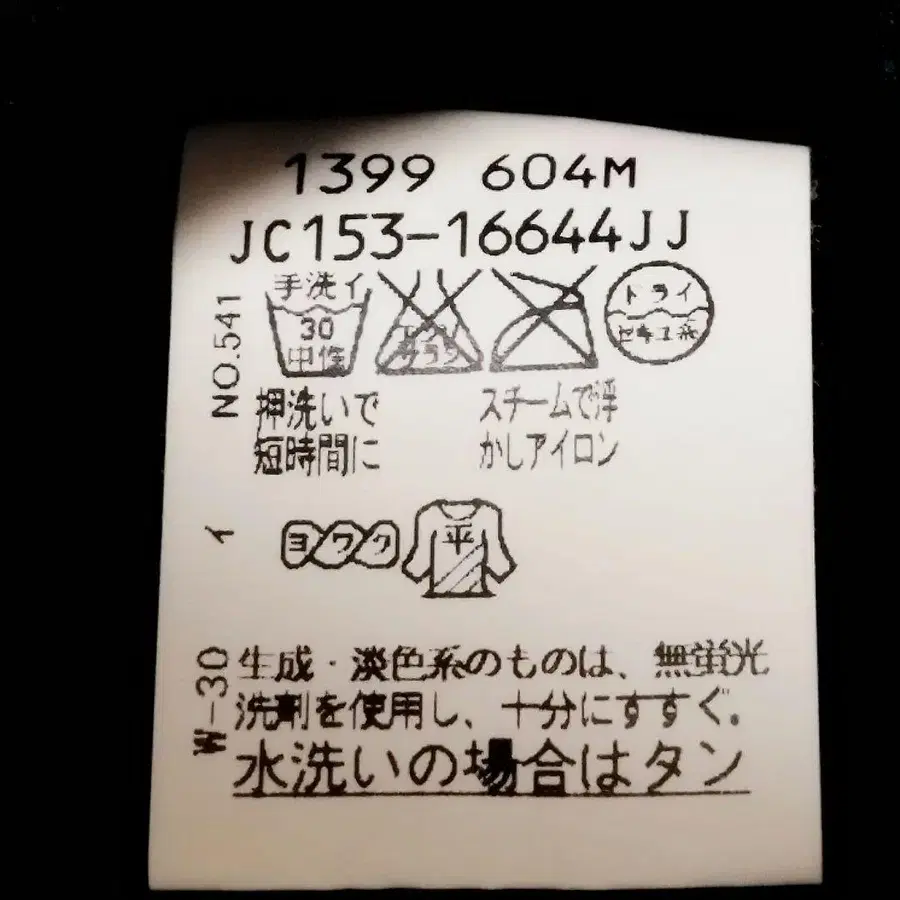 1399 604M
JC153-16644JJ
手洗イ
30
中性
エンソ
サラシ
ドライ
セキユ系
NO.541
押洗いで
短時間に
スチームで浮
かしアイロン
イ
ヨワク
平
W-30
生成・淡色系のものは、無蛍光
洗剤を使用し、十分にすすぐ。
水洗いの場合はタン